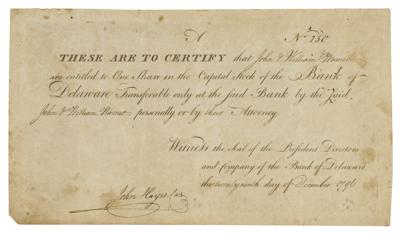 A
No. 150
THESE ARE TO CERTIFY that John & William Warner
are entitled to One Share in the Capital Stock of the Bank of
Delaware Transferable only at the said Bank by the Said
John & William Warner personally or by their Attorney
Witness the Seal of the President Directors
and Company of the Bank of Delaware
the twenty ninth day of December 1796
John Hayes Car